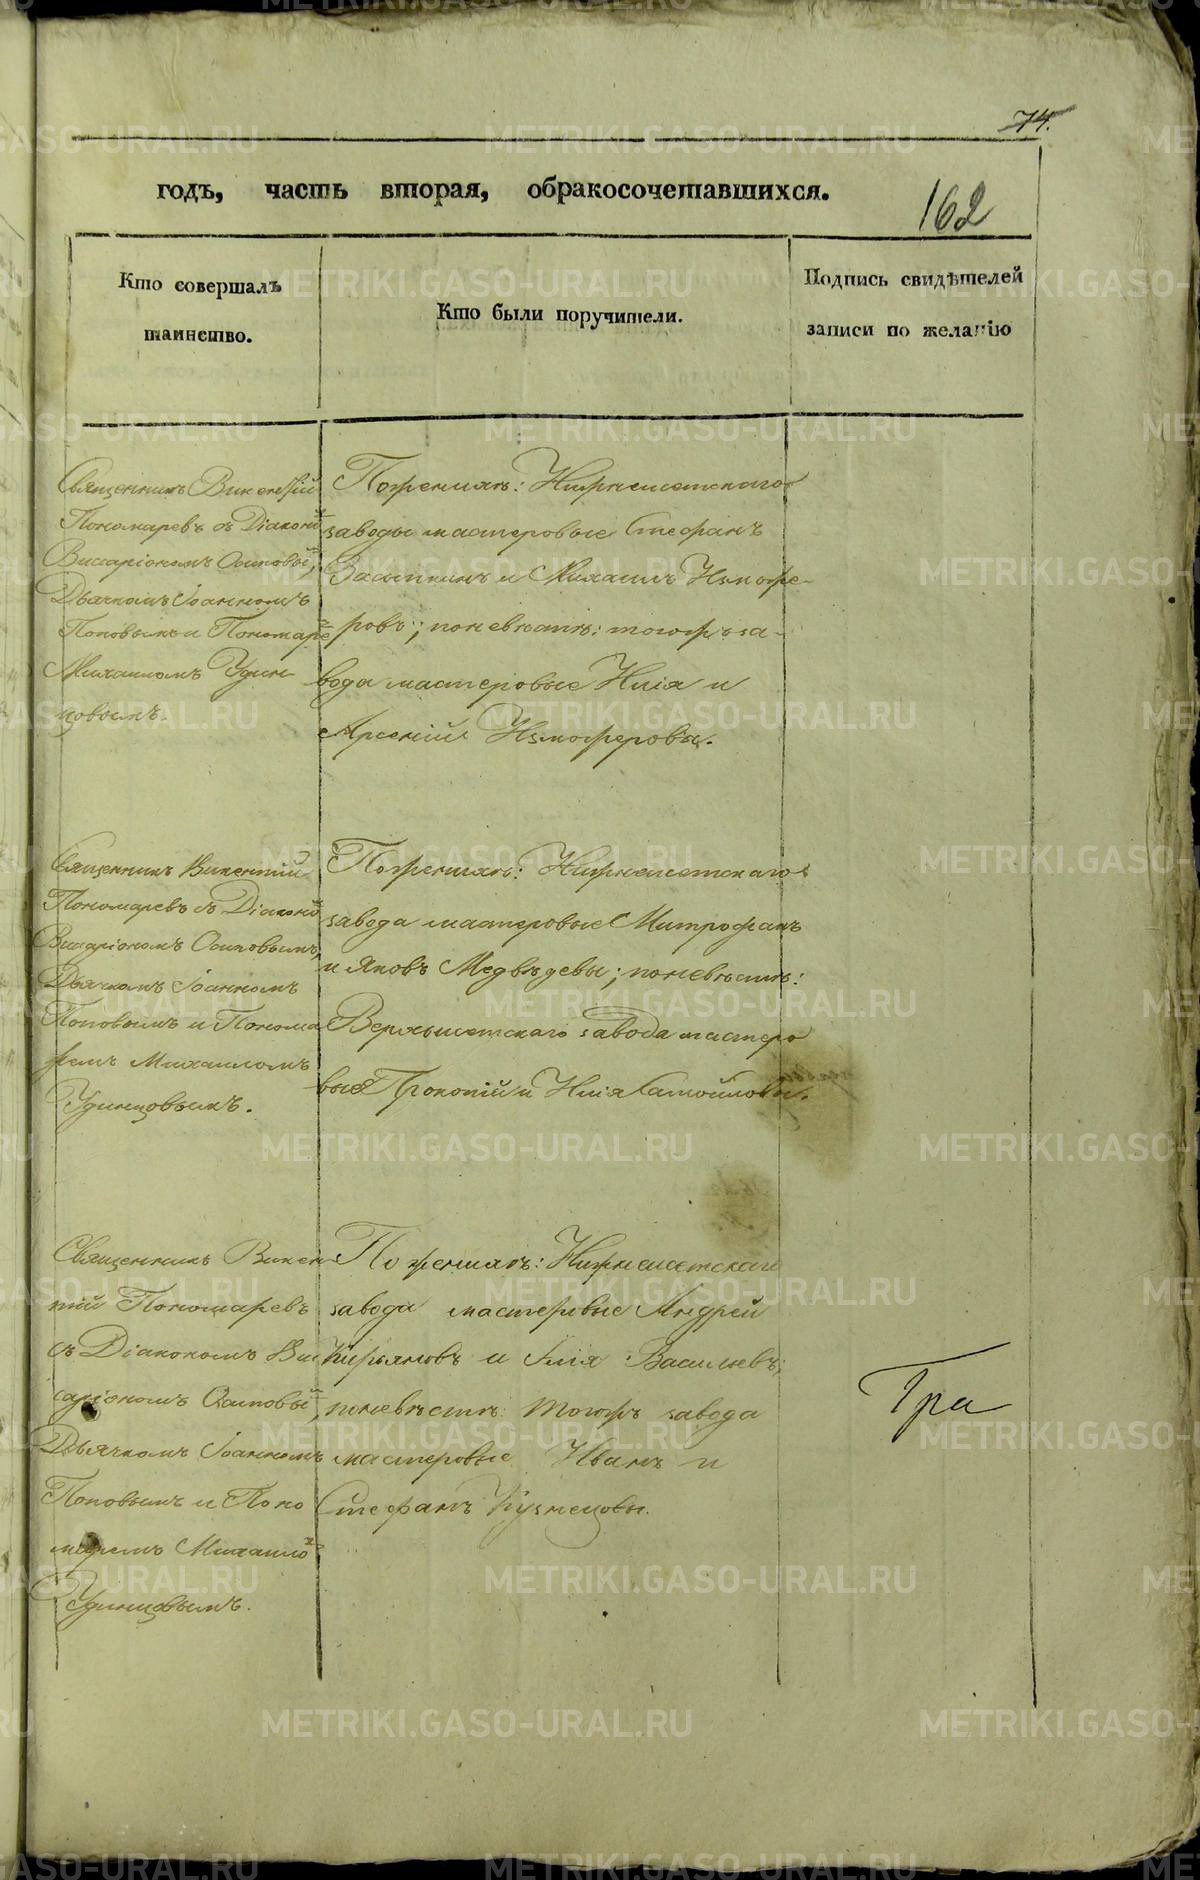 74.
годъ, часть вторая, обракосочетавшихся.
162
Кто совершалъ
таинство.
Кто были поручители.
Подпись свидѣтелей
записи по желанію
Священникъ Викентій
Пономаревъ съ Діакономъ
Висаріономъ Осиповымъ,
Дьячкомъ Іоанномъ
Поповымъ и Пономаре
Михаиломъ Удин
цовымъ.
Поженихѣ: Нижнеисетскаго
завода мастеровые Стефанъ
и Михаилъ Изможе-
ровъ; поневѣстѣ: тогожъ за-
вода мастеровые Илія и
Арсеній Изможеровы.
Священникъ Викентій
Пономаревъ съ Діакономъ
Висаріономъ Осиповымъ,
Дьячкомъ Іоанномъ
Поповымъ и Понома
ремъ Михаиломъ
Удинцовымъ.
Поженихѣ: Нижнеисетскаго
завода мастеровые Митрофанъ
и Яковъ Медвѣдевы; поневѣстѣ:
Верхъисетскаго завода мастеро
вые Прокопій и Илія Самойловы.
Священникъ Викен
тій Пономаревъ
съ Діакономъ Вис
аріономъ Осиповы,
Дьячкомъ Іоанномъ
Поповымъ и Поно
маремъ Михаило
Удинцовымъ.
Поженихѣ: Нижнеисетскаго
завода мастеровые Андрей
Кирьяновъ и Илія Васильевъ;
поневѣстѣ: тогожъ завода
мастеровые Иванъ и
Стефанъ Кузнецовы.
Гра
METRIKI.GASO-URAL.RU